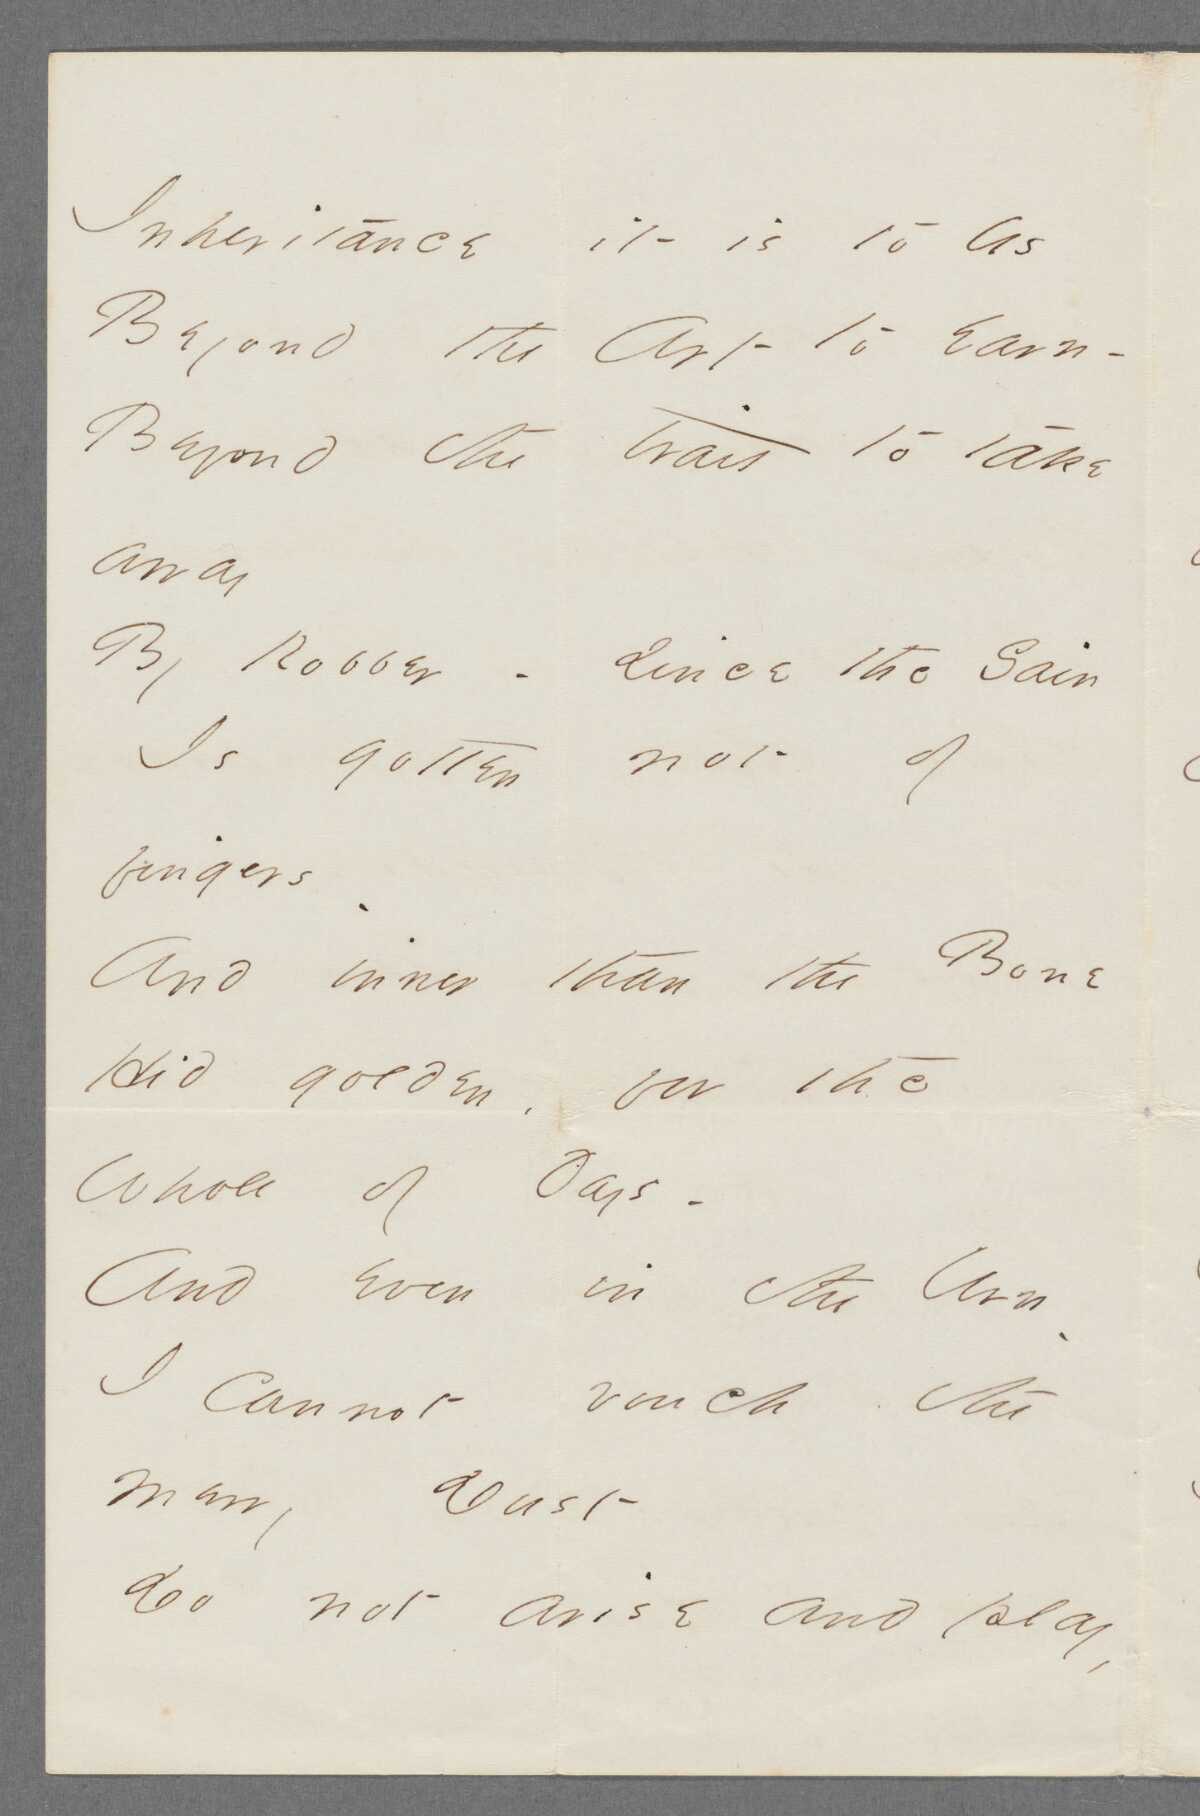 Inheritance it is to Us
Beyond the Art to Earn -
Beyond the trait to take
away
By Robber - since the Gain
Is gotten not of
fingers,
And inner than the Bone
Hid golden, for the
Whole of Days -
And even in the Urn,
I cannot vouch the
merry Dust
Do not arise and play,